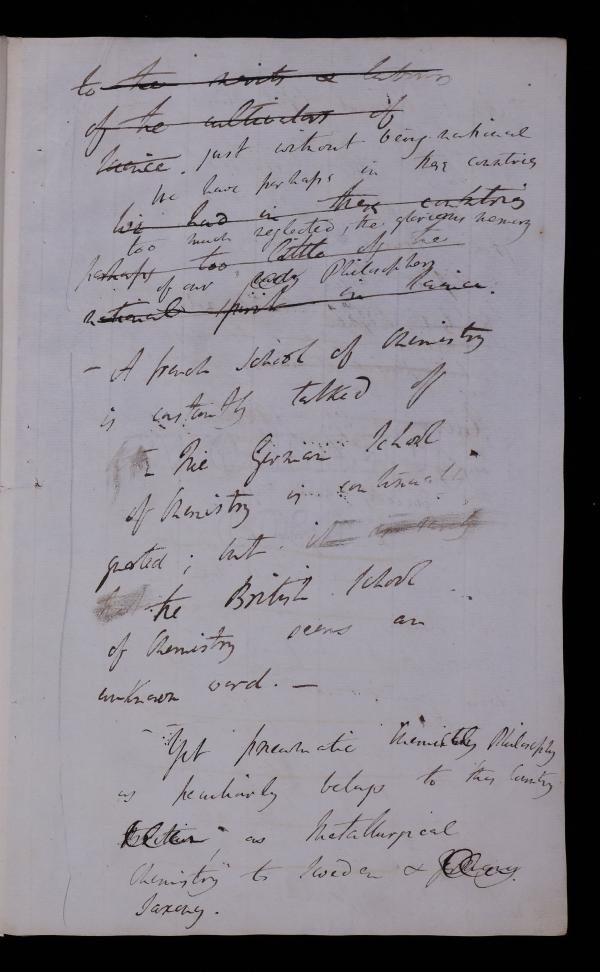 to the merits & labours
of the cultivators of
science. just without being national
We have perhaps in these countries
We had in these countries
too much neglected, the glorious memory
perhaps too little of the
of our early Philosophers
national spirit in science.
- A french School of Chemistry
is constantly talked of
- The German School
of Chemistry is continually
quoted; but it
the British School
of Chemistry seems an
unknown word. -
- Yet pneumatic Chemistry Philosophy
as peculiarly belongs to this Country
Britain, as Metallurgical
Chemistry to Sweden &
Saxony.